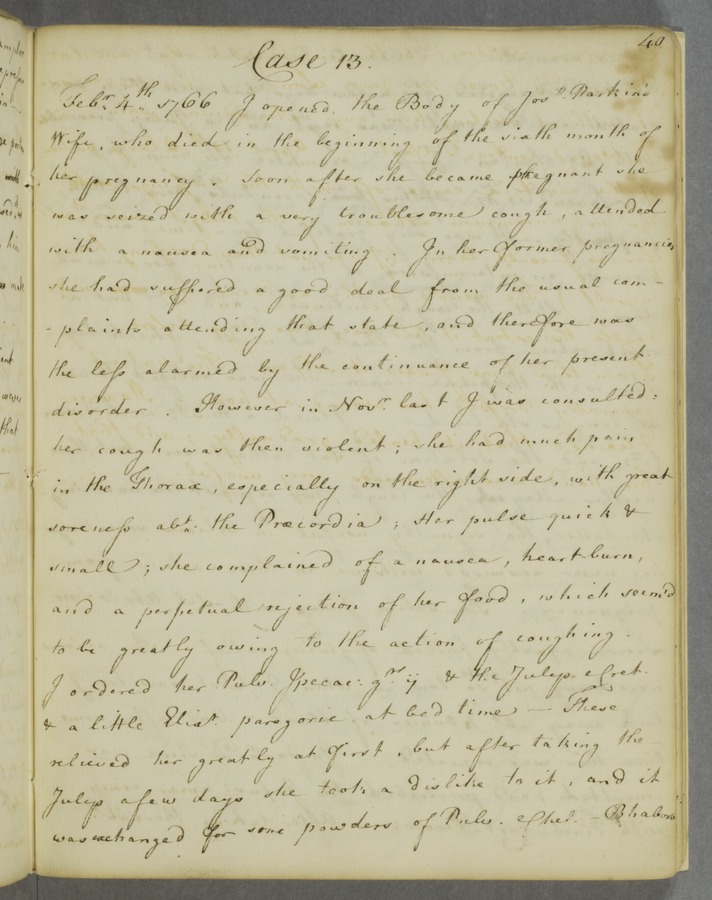 40
Case 13.
Febr. 4th 1766 I opened the Body of Josh. Parkin's
Wife, who died in the beginning of the sixth month of
her pregnancy. Soon after she became pregnant she
was seized with a very troublesome cough, attended
with a nausea and vomiting. In her former pregnancies
she had suffered a good deal from the usual com-
-plaints attending that state, and therefore was
the less alarmed by the continuance of her present
disorder. However in Novr. last I was consulted:
her cough was then violent; she had much pain
in the Thorax, especially on the right side, with great
soreness abt. the Præcordia; Her pulse quick &
small; she complained of a nausea, heart-burn,
and a perpetual rejection of her food, which seem'd
to be greatly owing to the action of coughing.
I ordered her Pulv. Ipecac: grs ij & the Julep. e Cret.
& a little Elixr. paregoric at bed time — These
relieved her greatly at first, but after taking the
Julep a few days she took a dislike to it, and it
was exchanged for some powders of Pulv. e Chel. - Rhabarb